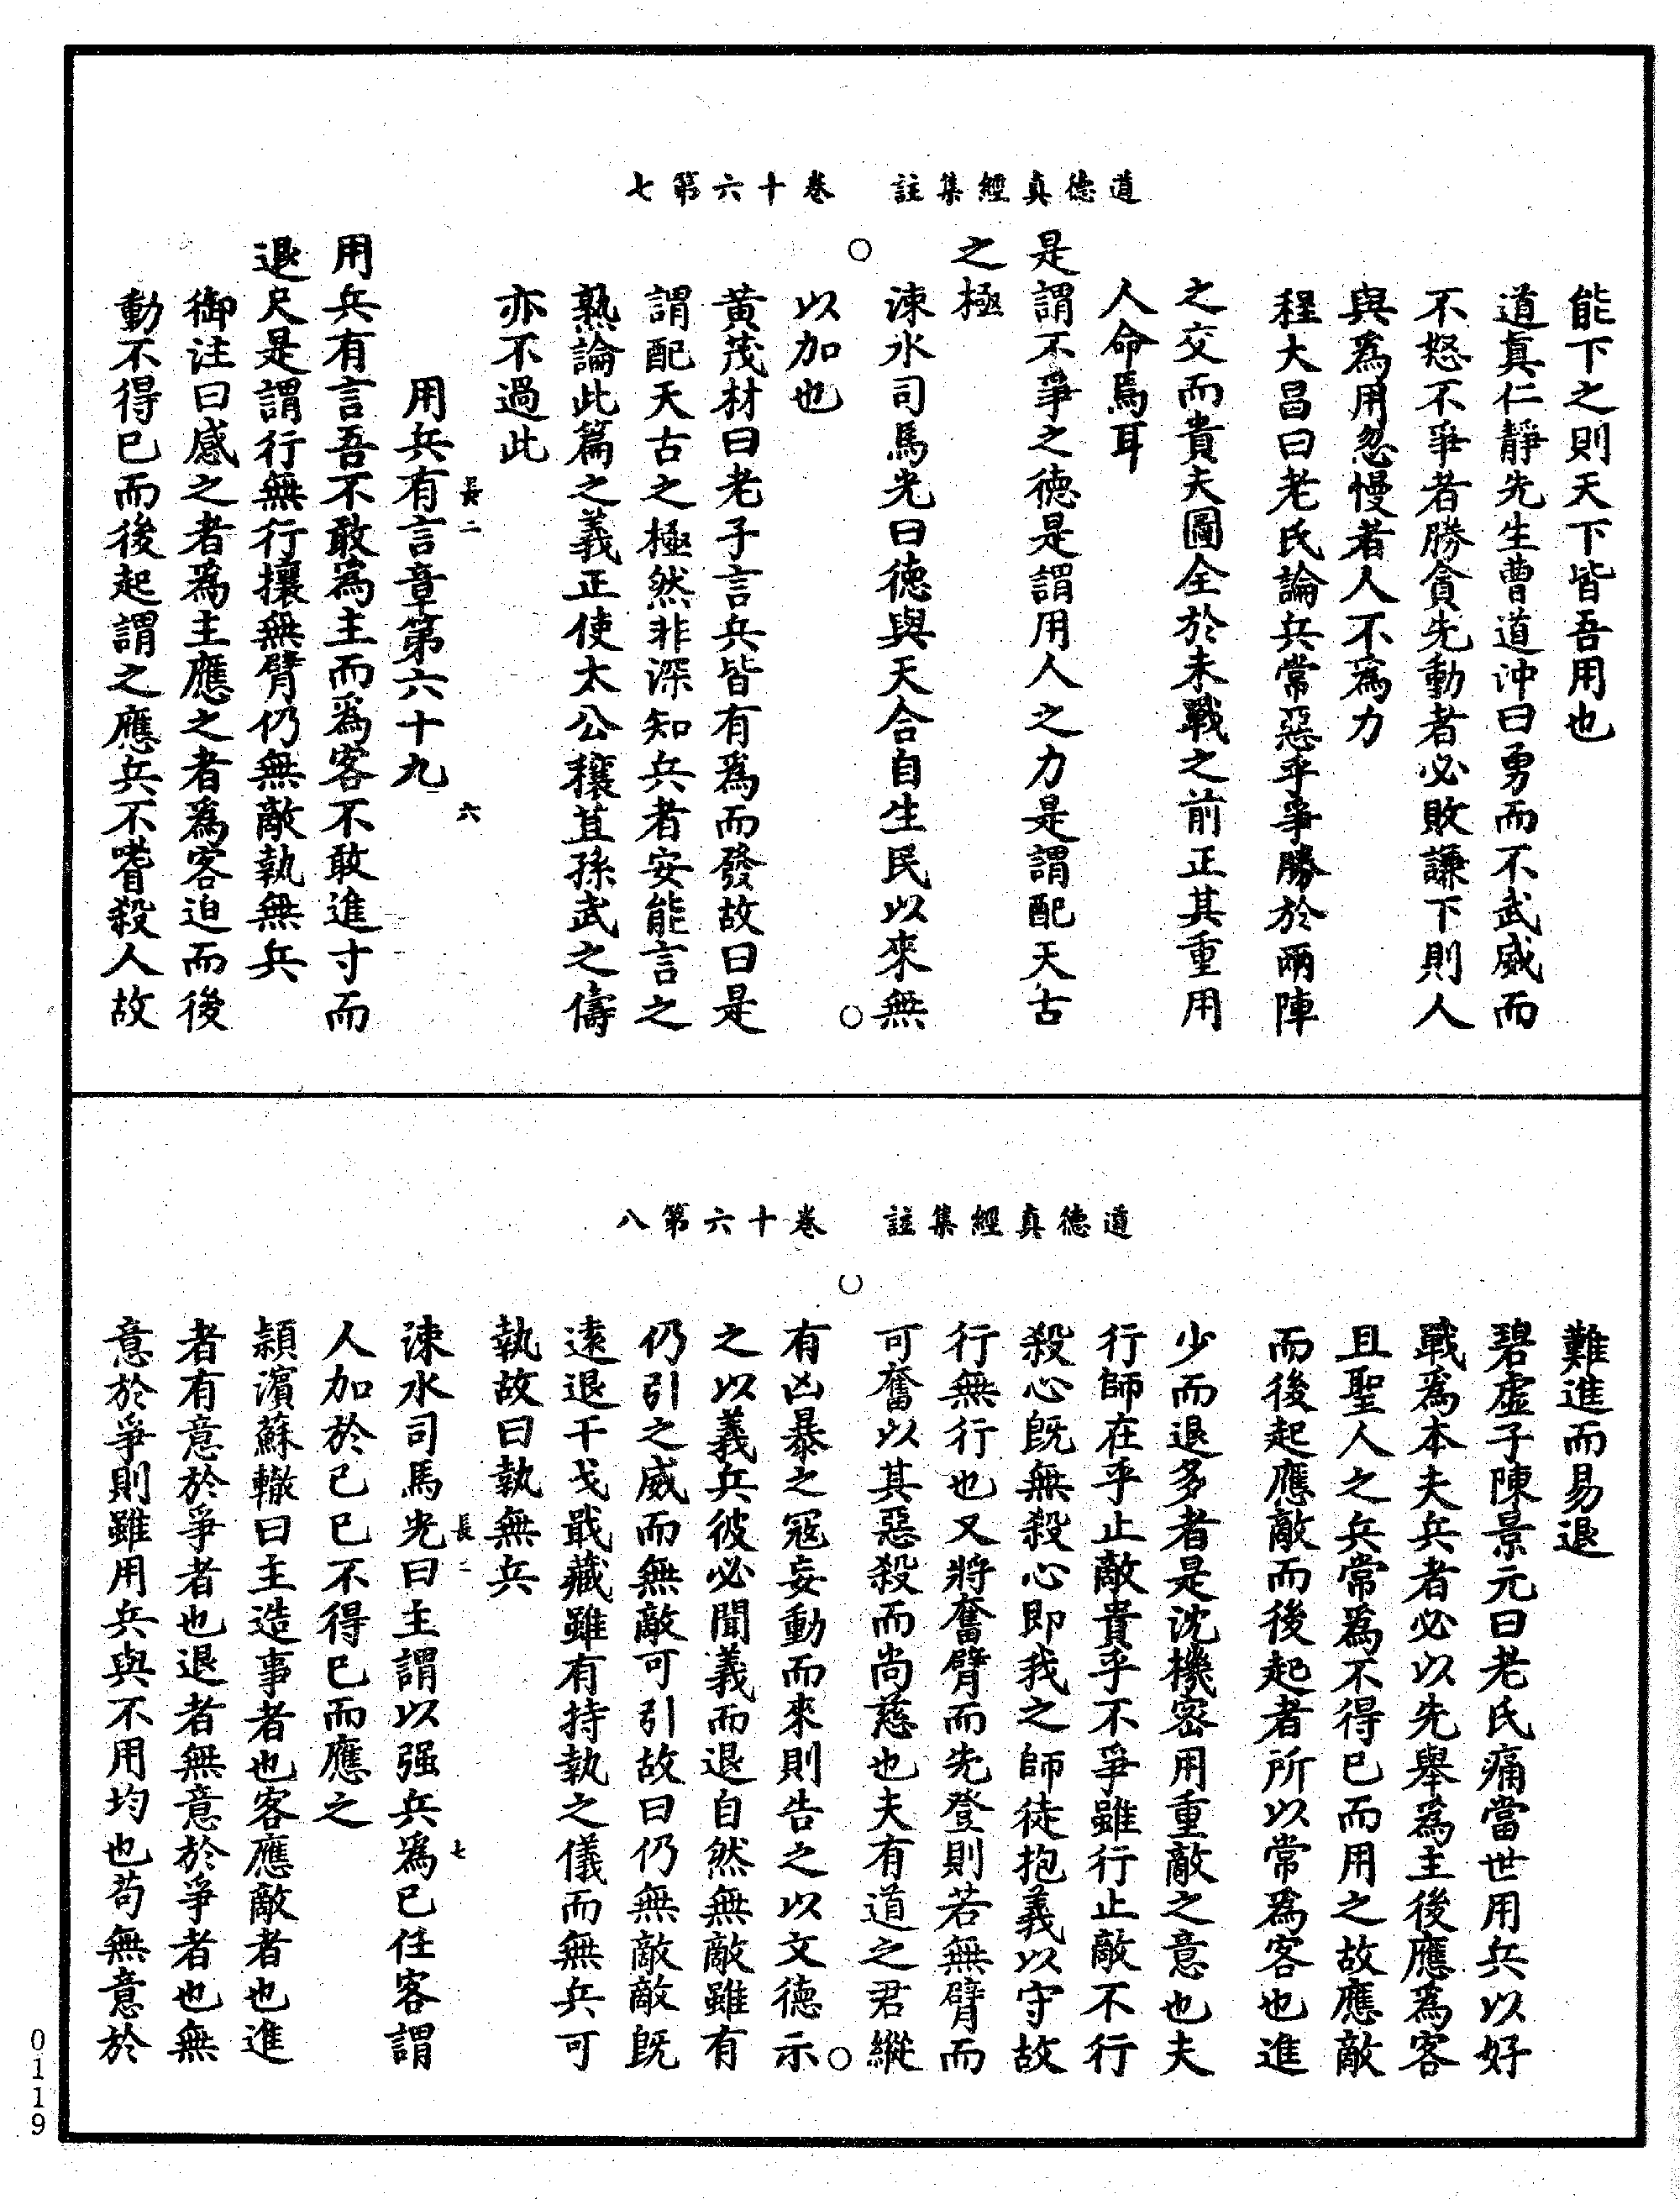 道德真經集註　卷十六第七
能下之則天下皆吾用也
道真仁靜先生曹道沖曰勇而不武威而
不怒不爭者勝貪先動者必敗謙下則人
與爲用忽慢著人不爲力
程大昌曰老氏論兵常惡乎爭勝於兩陣
之交而貴夫圖全於未戰之前正其重用
人命焉耳
是謂不爭之德是謂用人之力是謂配天古
之極
涑水司馬光曰德與天合自生民以來無
以加也
黄茂材曰老子言兵皆有爲而發故曰是
謂配天古之極然非深知兵者安能言之
熟論此篇之義正使太公穰苴孫武之儔
亦不過此
長二
六
用兵有言章第六十九
用兵有言吾不敢爲主而爲客不敢進寸而
退尺是謂行無行攘無臂仍無敵執無兵
御注曰感之者爲主應之者爲客迫而後
動不得已而後起謂之應兵不嗜殺人故
道德真經集註　卷十六第八
難進而易退
碧虛子陳景元曰老氏痛當世用兵以好
戰爲本夫兵者必以先舉爲主後應爲客
且聖人之兵常爲不得已而用之故應敵
而後起應敵而後起者所以常爲客也進
少而退多者是沈機密用重敵之意也夫
行師在乎止敵貴乎不爭雖行止敵不行
殺心既無殺心即我之師徒抱義以守故
行無行也又將奮臂而先登則若無臂而
可奮以其惡殺而尚慈也夫有道之君縱
有凶暴之冦妄動而來則告之以文德示
之以義兵彼必聞義而退自然無敵雖有
仍引之威而無敵可引故曰仍無敵敵既
遠退干戈戢藏雖有持執之儀而無兵可
執故曰執無兵
長二
七
涑水司馬光曰主謂以强兵爲已任客謂
人加於已已不得已而應之
潁濱蘇轍曰主造事者也客應敵者也進
者有意於爭者也退者無意於爭者也無
意於爭則雖用兵與不用均也苟無意於
0119